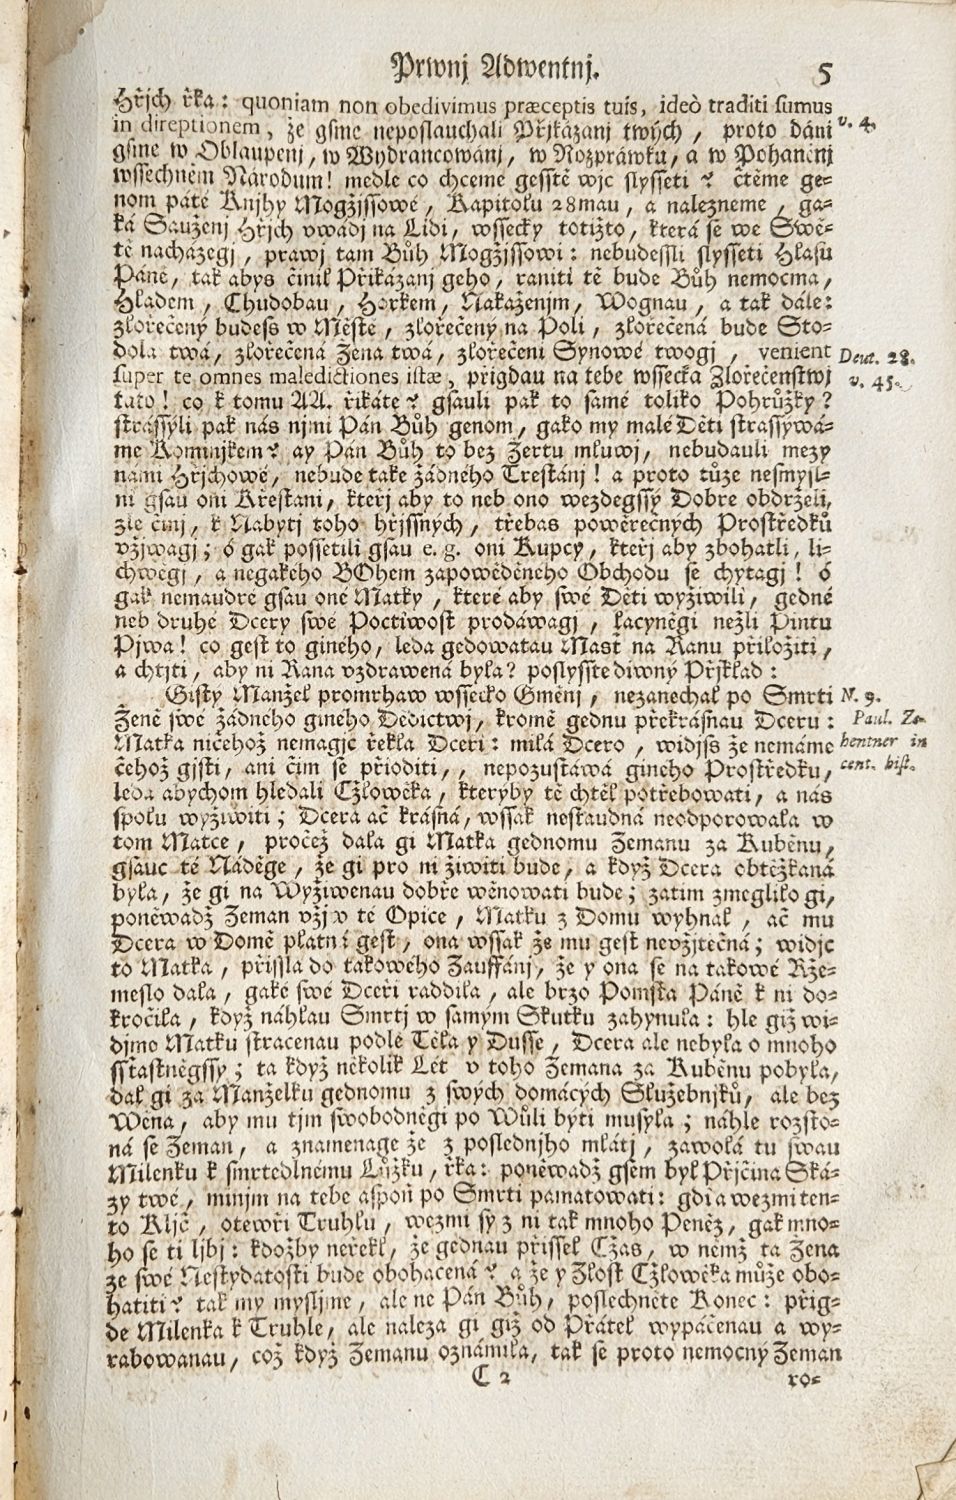 Prwnj Adwentnj. 5
Hřjch řka: quoniam non obedivimus præceptis tuis, ideò traditi sumus
in direptionem, že gsme neposlauchali Přjkázanj twých, proto dáni v. 4.
gsme w Oblaupenj, w Wydrancowánj, w Rozpráwku, a w Pohaněnj
wssechněm Národum! medle co chceme gesstě wjc slysseti? čtěme ge-
nom páté Knjhy Mogžjssowé, Kapitolu 28mau, a nalezneme, ga-
ká Sauženj Hřjch vwádj na Lidi, wssecky totižto, která se we Swě-
tě nacházegj, prawj tam Bůh Mogžjssowi: nebudessli slysseti Hlasu
Páně, tak abys činil Přikázanj geho, raniti tě bude Bůh nemocma,
Hladem, Chudobau, Horkem, Nakaženjm, Wognau, a tak dále:
zlořečený budess w Městě, zlořečený na Poli, zlořečená bude Sto-
dola twá, zlořečená Žena twá, zlořečeni Synowé twogj, venient Deut. 28.
super te omnes maledictiones istæ, přigdau na tebe wssecka Zlořečenstwj v. 45.
tato! co k tomu AA. řikáte? gsauli pak to samé toliko Pohrůžky?
strássyli pak nás njmi Pán Bůh genom, gako my malé Děti strassywá-
me Kominjkem? ay Pán Bůh to bez Žertu mluwj, nebudauli mezy
námi Hřjchowé, nebude také žádného Trestánj! a proto tůze nesmysl-
ni gsau oni Křestani, kteřj aby to neb ono wezdegssý Dobré obdrželi,
zle činj, k Nabytj toho hřjssných, třebas powěrečných Prostředků
vžjwagj; ó gak possetili gsau e. g. oni Kupcy, kteřj aby zbohatli, li-
chwěgj, a negakého BOhem zapowěděného Obchodu se chytagj! ó
gak nemaudré gsau oné Matky, které aby swé Děti wyžiwili, gedné
neb druhé Dcery swé Poctiwost prodáwagj, lacyněgi nežli Pintu
Pjwa! co gest to giného, leda gedowatau Mast na Ranu přiložiti,
a chtjti, aby ni Rana vzdrawená byla? poslysste diwný Přjklad:
Gistý Manžel promrhaw wssecko Gměnj, nezanechal po Smrti N. 9.
Ženě swé žádného giného Dědictwj, kromě gednu překrásňau Dceru: Paul. Ze-
Matka ničehož nemagjc řekla Dceři: milá Dcero, widjss že nemáme hentner in
čehož gjsti, ani čim se přioditi,, nepozustáwá giného Prostředku, cent. hist.
leda abychom hledali Cžlowěka, kterýby tě chtěl potřebowati, a nás
spolu wyžiwiti; Dcera ač krásňá, wssak nestaudná neodporowala w
tom Matce, pročež dala gi Matka gednomu Zemanu za Kuběnu,
gsauc té Náděge, že gi pro ni žiwiti bude, a když Dcera obtěžkaná
byla, že gi na Wyžiwenau dobře wěnowati bude; zatim zmeglilo gi,
poněwadž Zeman vžj v té Opice, Matku z Domu wyhnal, ač mu
Dcera w Domě platná gest, ona wssak že mu gest nevžjtečná; widjc
to Matka, přissla do takowého Zauffánj, že y ona se na takowé Rže-
meslo dala, gaké swé Dceři raddila, ale brzo Pomsta Páně k ni do-
kročila, když náhlau Smrtj w samým Skutku zahynula: hle giž wi-
djme Matku stracenau podlé Těla y Dusse, Dcera ale nebyla o mnoho
sstastněgssy; ta když několik Lét v toho Zemana za Kuběnu pobyla,
dal gi za Manželku gednomu z swých domácých Služebnjků, ale bez
Wěna, aby mu tjm swobodněgi po Wůli byti musyla; náhle rozsto-
ná se Zeman, a znamenage že z poslednjho mlátj, zawolá tu swau
Milenku k smrtedlnému Lůžku, řka: poněwadž gsem byl Přjčina Ská-
zy twé, minjm na tebe aspoň po Smrti pamatowati: gdi a wezmi ten-
to Kljč, otewři Truhlu, wezmi sy z ni tak mnoho Peněz, gak mno-
ho se ti ljbj: kdožby neřekl, že gednau přissel Cžas, w němž ta Žena
ze swé Nestydatosti bude obohacená? a že y Zlost Cžlowěka může obo-
hatiti? tak my mysljme, ale ne Pán Bůh, poslechněte Konec: přig-
de Milenka k Truhle, ale naleza gi giž od Přátel wypáčenau a wy-
rabowanau, což když Zemanu oznámila, tak se proto nemocný Zeman
C 2 ro-